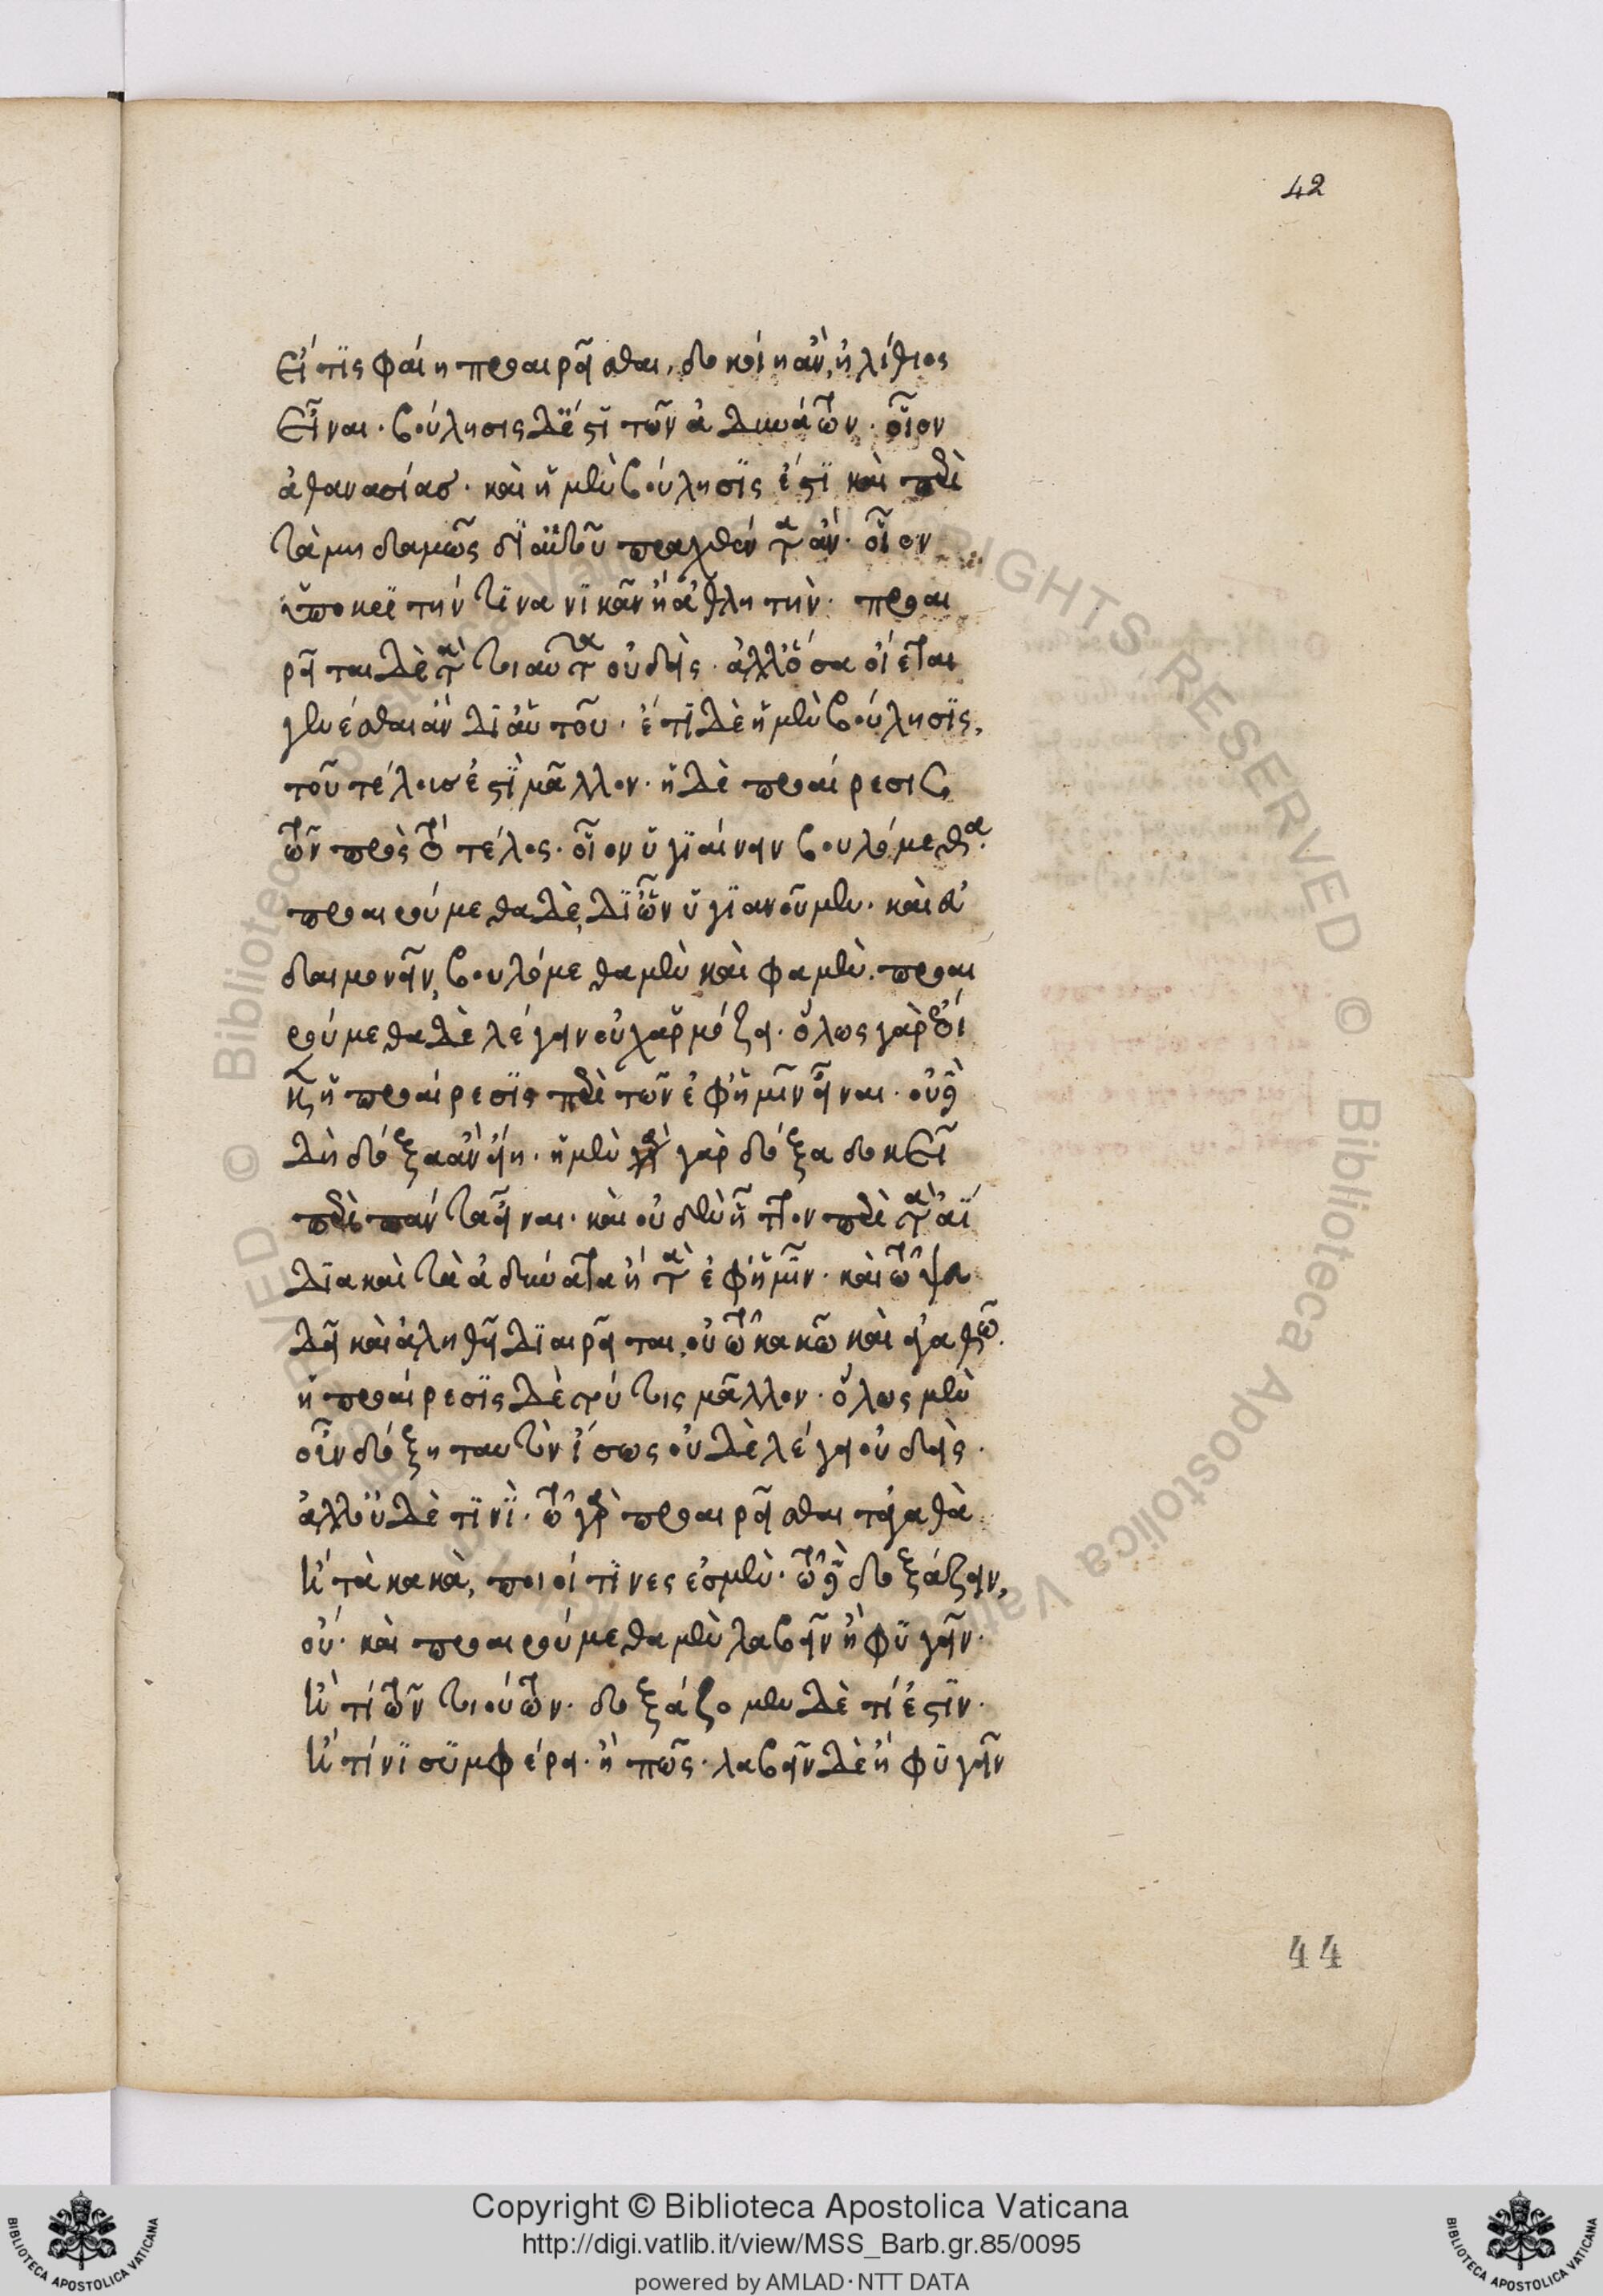 42
εἴ τις φαίη προαιρεῖσθαι, δοκοίη ἂν ἠλίθιος
εἶναι· βούλησις δέ ἐστι τῶν ἀδυνάτων· οἷον
ἀθανασίας· καὶ ἡ μὲν βούλησις ἐστὶ καὶ περὶ
τὰ μηδαμῶς δι' αὑτοῦ πραχθέντα ἄν· οἷον
ὑποκριτήν τινα νικᾶν ἢ ἀθλητήν· προαι
ρεῖται δὲ τὰ τοιαῦτα οὐδείς· ἀλλ' ὅσα οἴεται
γενέσθαι ἂν δι' αὑτοῦ· ἔτι δὲ ἡ μὲν βούλησις,
τοῦ τέλους ἐστὶ μᾶλλον· ἡ δὲ προαίρεσις
τῶν πρὸς τὸ τέλος· οἷον ὑγιαίνειν βουλόμεθα·
προαιρούμεθα δὲ, δι' ὧν ὑγιανοῦμεν· καὶ εὐ
δαιμονεῖν, βουλόμεθα μὲν καὶ φαμὲν· προαι
ρούμεθα δὲ λέγειν οὐχ ἁρμόζει· ὅλως γὰρ ἔοι
κεν ἡ προαίρεσις περὶ τῶν ἐφ' ἡμῖν εἶναι· οὐδὲ
δὴ δόξα ἂν εἴη· ἡ μὲν γὰρ δόξα δοκεῖ
περὶ πάντα εἶναι· καὶ οὐδὲν ἧττον περὶ τὰ ἀΐ
δια καὶ τὰ ἀδύνατα ἢ τὰ ἐφ' ἡμῖν· καὶ τῷ ψευ
δεῖ καὶ ἀληθεῖ διαιρεῖται, οὐ τῷ κακῷ καὶ ἀγαθῷ.
ἡ προαίρεσις δὲ τούτοις μᾶλλον· ὅλως μὲν
οὖν δόξῃ ταυτὸν ἴσως οὐδὲ λέγει οὐδείς·
ἀλλ' οὐδὲ τινὶ· τῷ γὰρ προαιρεῖσθαι τἀγαθὰ
ἢ τὰ κακὰ, ποιοί τινες ἐσμὲν· τῷ δὲ δοξάζειν,
οὔ· καὶ προαιρούμεθα μὲν λαβεῖν ἢ φυγεῖν·
ἤ τι τῶν τοιούτων· δοξάζομεν δὲ τί ἐστιν·
ἢ τίνι συμφέρει· ἢ πῶς· λαβεῖν δὲ ἢ φυγεῖν
44
BIBLIOTECA APOSTOLICA VATICANA
Copyright © Biblioteca Apostolica Vaticana
http://digi.vatlib.it/view/MSS_Barb.gr.85/0095
powered by AMLAD·NTT DATA
BIBLIOTECA APOSTOLICA VATICANA